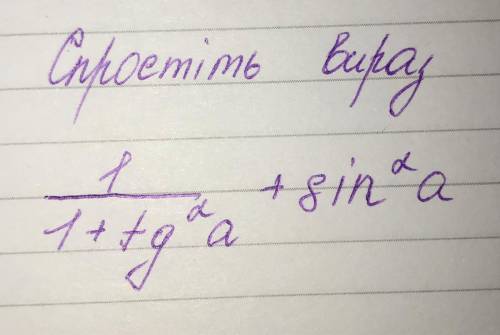 Спростіть вираз
1
1 + tg²a + sin²a